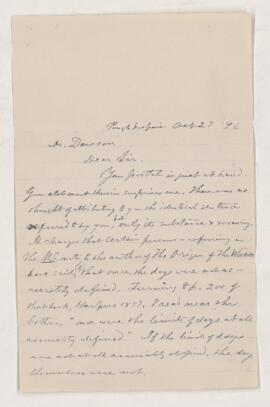 Poughkeepsie Oct 27 96
Dr. Dawson
Dear Sir.
Your postal is just at hand.
Your statement therein surprises me. There was no
thought of attributing to you the identical sentence
referred to by you, but only its substance & meaning.
It charges that certain persons — referring in
the note to the author of The Origin of the World
have said, "that once the days were not ac-
curately defined. Turning to p. 200 of
that book, Harpers 1877, I read near the
bottom, "nor were the limits of days at all
accurately defined". If the limits of days
were not at all accurately defined, the days
themselves were not.